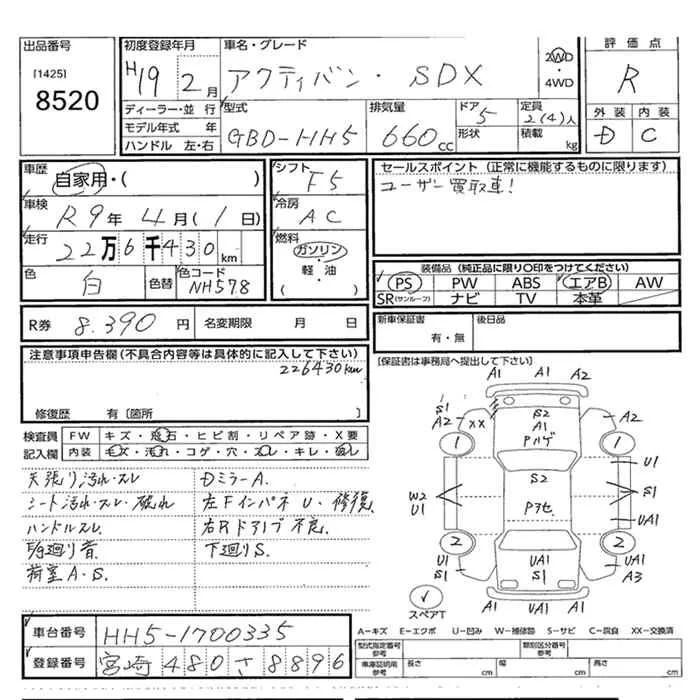 出品番号
[1425]
8520
初度登録年月
H19年2月
車名・グレード
アクティバン・SDX
2WD
・
4WD
評価点
R
ディーラー・並行
モデル年式 年
ハンドル 左・右
型式
GBD-HH5
排気量
660cc
ドア
5
形状
定員
2(4)人
積載
kg
外装 内装
D C
車歴
自家用・( )
車検
R9年4月(1日)
走行
22万6千430km
色
白
色替
色コード
NH578
シフト
F5
冷房
AC
燃料
ガソリン
・
軽・油
( )
セールスポイント (正常に機能するものに限ります)
ユーザー買取車!
装備品 (純正品に限り○印をつけてください)
PS PW ABS エアB AW
SR(サンルーフ) ナビ TV 本革
R券 8.390円 名変期限 月 日
新車保証書
有・無
後日品
[保証書は事務局へ提出して下さい]
注意事項申告欄(不具合内容等は具体的に記入して下さい)
226430km
修復歴 有〔箇所 〕
検査員
記入欄
FW キズ・飛石・ヒビ割・リペア跡・X要
内装 キズ・汚れ・コゲ・穴・スレ・キレ・破レ
天張り汚れ・スレ
シート汚れ・スレ・破れ
ハンドルスレ
荷室A・S.
DミラーA.
左FインパネU・修復
右Rドアノブ不良.
下廻りS.
A1 A1 A2
S1
A2 XX
S2
A1
A2
1 1
U1
S2
W2
U1
S1
UA1
2 2
U1
S1
UA1
S1
UA1
A3
A1 UA1 UA1
スペアT
車台番号
HH5-1700335
登録番号
宮崎480さ8896
A—キズ E—エクボ U—凹み W—補修跡 S—サビ C—腐食 XX—交換済
型式指定番号
類別区分番号
車庫証明用
参考
長さ cm
幅 cm
高さ cm